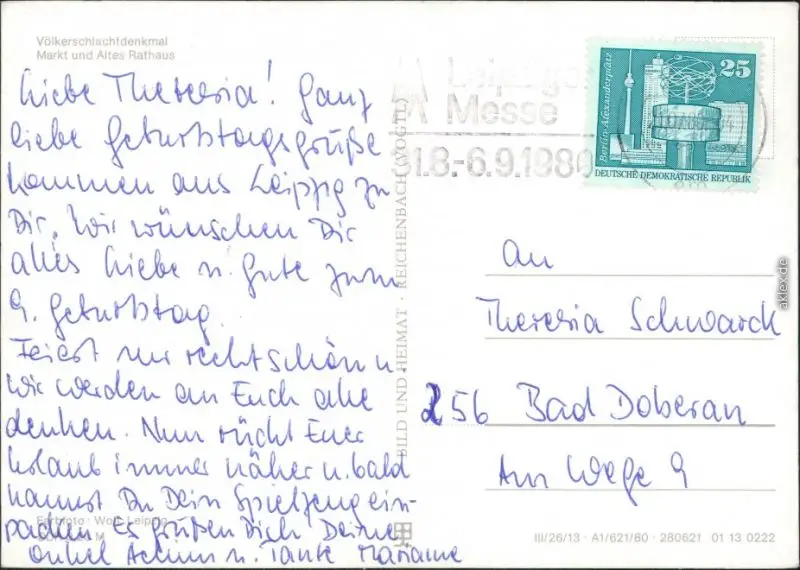 Völkerschlachtdenkmal
Markt und Altes Rathaus
Liebe Theresia! Ganz
liebe Geburtstagsgrüße
kommen aus Leipzig zu
Dir. Wir wünschen Dir
alles Liebe u. Gute zum
9. Geburtstag.
Feiert nur recht schön u.
wir werden an Euch alle
denken. Nun rückt Euer
Urlaub immer näher u. bald
kannst Du Dein Spielzeug ein-
packen. Es grüßen Dich Deine
Onkel Achim u. Tante Marianne
Farbfoto: Leipzig
BILD UND HEIMAT · REICHENBACH (VOGTL)
Leipziger
Messe
31.8.-6.9.1980
Berlin-Alexanderplatz
25
DEUTSCHE DEMOKRATISCHE REPUBLIK
An
Theresia Schwarck
256 Bad Doberan
Am Wege 9
III/26/13 · A1/621/80 · 280621 01 13 0222
aklex.de